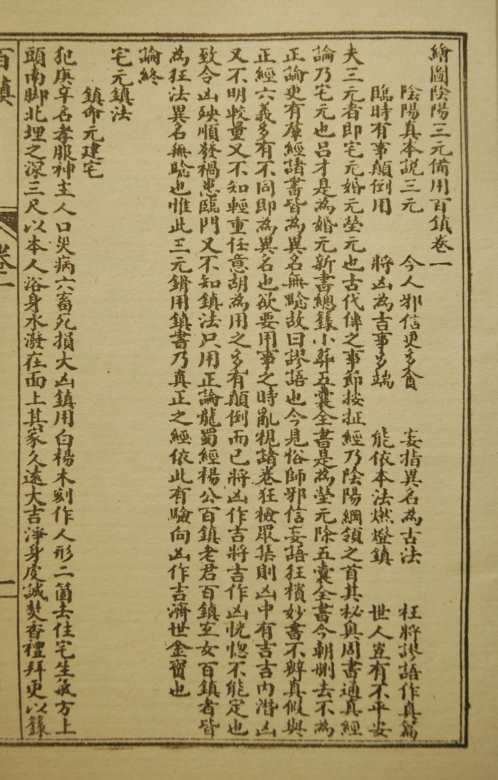 繪圖陰陽三元備用百鎮卷一
陰陽真本說三元 今人邪信更多貪 妄指異名為古法 枉將謬語作真篇
臨時有事顛倒用 將凶為吉事多端 能依本法燃燈鎮 世人豈有不平安
夫三元者即宅元婚元塋元也古代傳之事節按經乃陰陽綱領之首其秘與周書通真經
論乃宅元也呂才是為婚元新書總錄小莽五囊全書是為塋元除五囊全書今朝刪去不為
正論更有羣經諸書皆為異名無驗故曰謬語也今見俗師邪信妄語狂積妙書不辨真假與
正經六義多有不同即為異名也欲要用事之時亂視諸卷狂檢眾集則凶中有吉吉內潛凶
又不明較量又不知輕重任意胡為用之多有顛倒而已將凶作吉將吉作凶恍惚不能定也
致合凶殃順發禍患臨門又不知鎮法只用正論龍蜀經楊公百鎮老君百鎮玄女百鎮者皆
為狂法異名無驗也惟此三元錯用鎮書乃真正之經依此有驗向凶作吉濟世金寶也
論終
宅元鎮法
鎮命元建宅
犯庚年名孝服神主人口災病六畜死損大凶鎮用白楊木刻作人形二箇去住宅生氣方上
頭南脚北埋之深三尺以本人浴身水潑在面上其家久遠大吉淨身虔誠焚香禮拜更以籙
百鎮 卷一 一